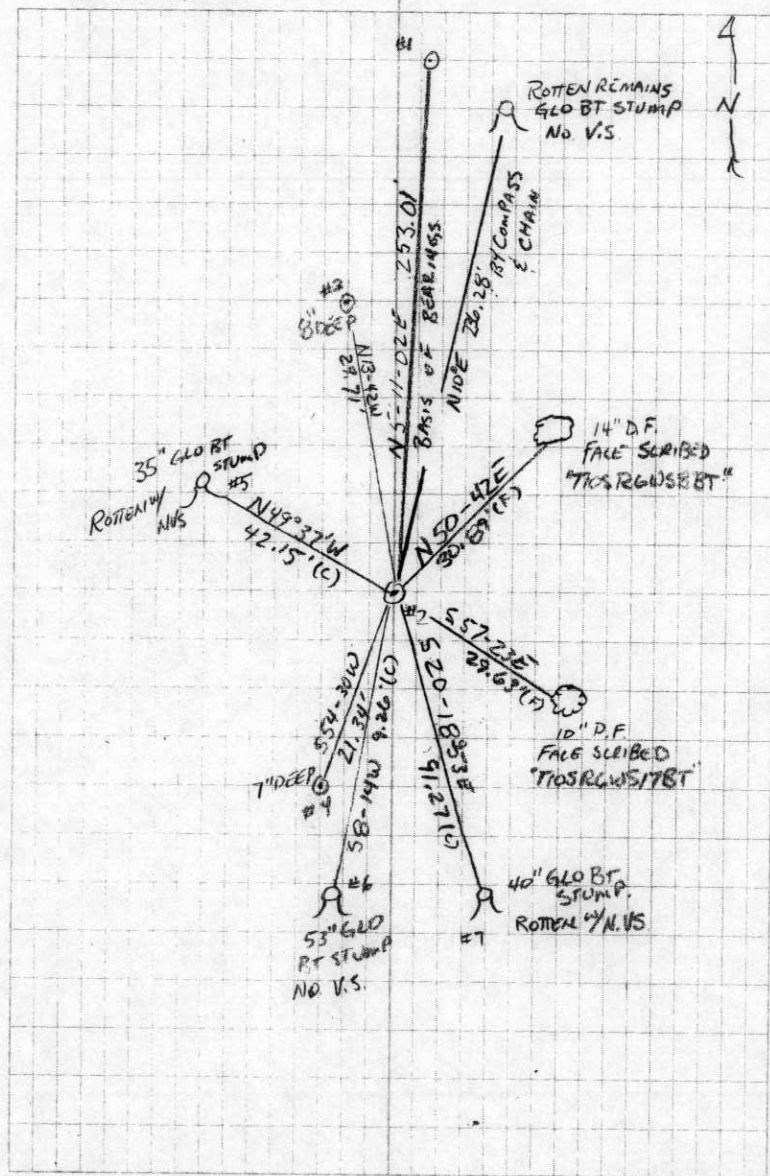 #1
N
ROTTEN REMAINS
GLO BT STUMP
NO V.S.
N5-11-02E 253.01'
BASIS OF BEARINGS
N10°E 236.28' BY COMPASS
& CHAIN
8" DEEP
N13-42W
29.71'
14" D.F.
FACE SCRIBED
"T10SR6WS8BT"
N 50-42E
30.89'(F)
35" GLO BT
STUMP
#5
ROTTEN W/
NVS
N49°37'W
42.15'(C)
#2
S 57-23E
29.63'(F)
10" D.F.
FACE SCRIBED
"T10SR6WS17BT"
S54-30W
21.34'
7" DEEP
#4
S8-14W
9.26'(C)
#6
53" GLO
BT STUMP
NO V.S.
40" GLO BT
STUMP.
ROTTEN W/N.VS
#7